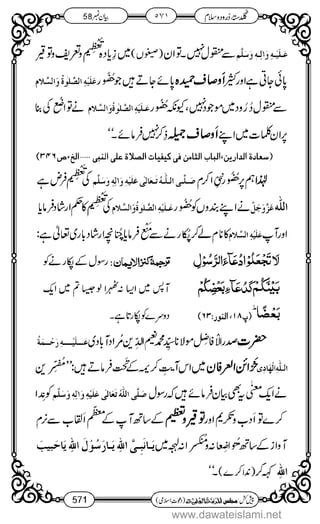 گلدستۂ دُرُود و سلام
۵۷۱
بیان نمبر 58
عَلَیْہِ وَاٰلِہٖ وَسَلَّم سے منقول نہیں۔ تو ان (صیغوں) میں زیادہ تعظیم و تعریف و توقیر
پائی جاتی ہے اور کثیر اَوصافِ حمیدہ پائے جاتے ہیں جو حُضُور عَلَیْہِ الصَّلٰوۃُ وَالسَّلَام
سے منقول دُرُود میں موجود نہیں، کیونکہ حُضُور عَلَیْہِ الصَّلٰوۃُ وَالسَّلَام نے تواضع کی بنا
پر ان کلمات میں اپنے اَوصافِ جلیلہ ذکر نہیں فرمائے۔‘‘
(سعادۃ الدارین، الباب الثامن فی کیفیات الصلاۃ علی النبی ۔۔۔ الخ، ص۳۴۶)
لہٰذا ہم پر حُضُور نبیِّ اکرم صَلَّی اللہُ تَعَالٰی عَلَیْہِ وَاٰلِہٖ وَسَلَّم کی تعظیم فرض ہے
اللہ عَزَّوَجَلَّ نے اپنے بندوں کو حُضُور عَلَیْہِ الصَّلٰوۃُ وَالسَّلَام کی تعظیم کا حکم ارشاد فرمایا
اور آپ عَلَیْہِ السَّلَام کا نام لے کر پکارنے سے منع فرمایا، چنانچہ ارشادِ باری تعالٰی ہے:
لَا تَجْعَلُوْا دُعَآءَ الرَّسُوْلِ
بَیْنَكُمْ كَدُعَآءِ بَعْضِكُمْ
بَعْضًا ؕ (پ۱۸، النور: ۶۳)
ترجمۂ کنز الایمان: رسول کے پکارنے کو
آپس میں ایسا نہ ٹھہرا لو جیسا تم میں ایک
دوسرے کو پکارتا ہے۔
حضرت صدرُ الْافاضِل مولانا سَیِّد محمد نعیم الدِّین مُراد آبادی عَلَیْہِ رَحْمَۃُ
اللہِ الْہَادِی خَزائنُ العِرفان میں اس آیتِ کریمہ کے تحت فرماتے ہیں: ’’مُفسِّرین
نے ایک معنٰی یہ بھی بیان فرمائے ہیں کہ رسول اللہ صَلَّی اللہُ تَعَالٰی عَلَیْہِ وَاٰلِہٖ وَسَلَّم کو نِدا
کرے تو ادب و تکریم اور توقیر و تعظیم کے ساتھ آپ کے مُعظَّم القاب سے نرم
آواز کے ساتھ مُتواضعانہ و مُنکسرانہ لہجہ میں یَا نَبِیَّ اللہِ یَا رَسُوْلَ اللہِ یَا حَبِیْبَ
اللہِ کہہ کر (ندا کرے)۔‘‘
پیش کش: مجلس المدینۃ العلمیۃ (دعوتِ اسلامی)
571
www.dawateislami.net